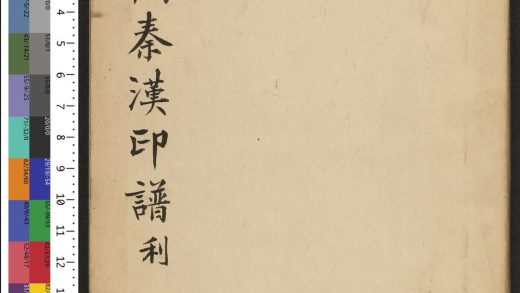 秦漢印譜 利
4
5
6
7
8
9
10
11
12